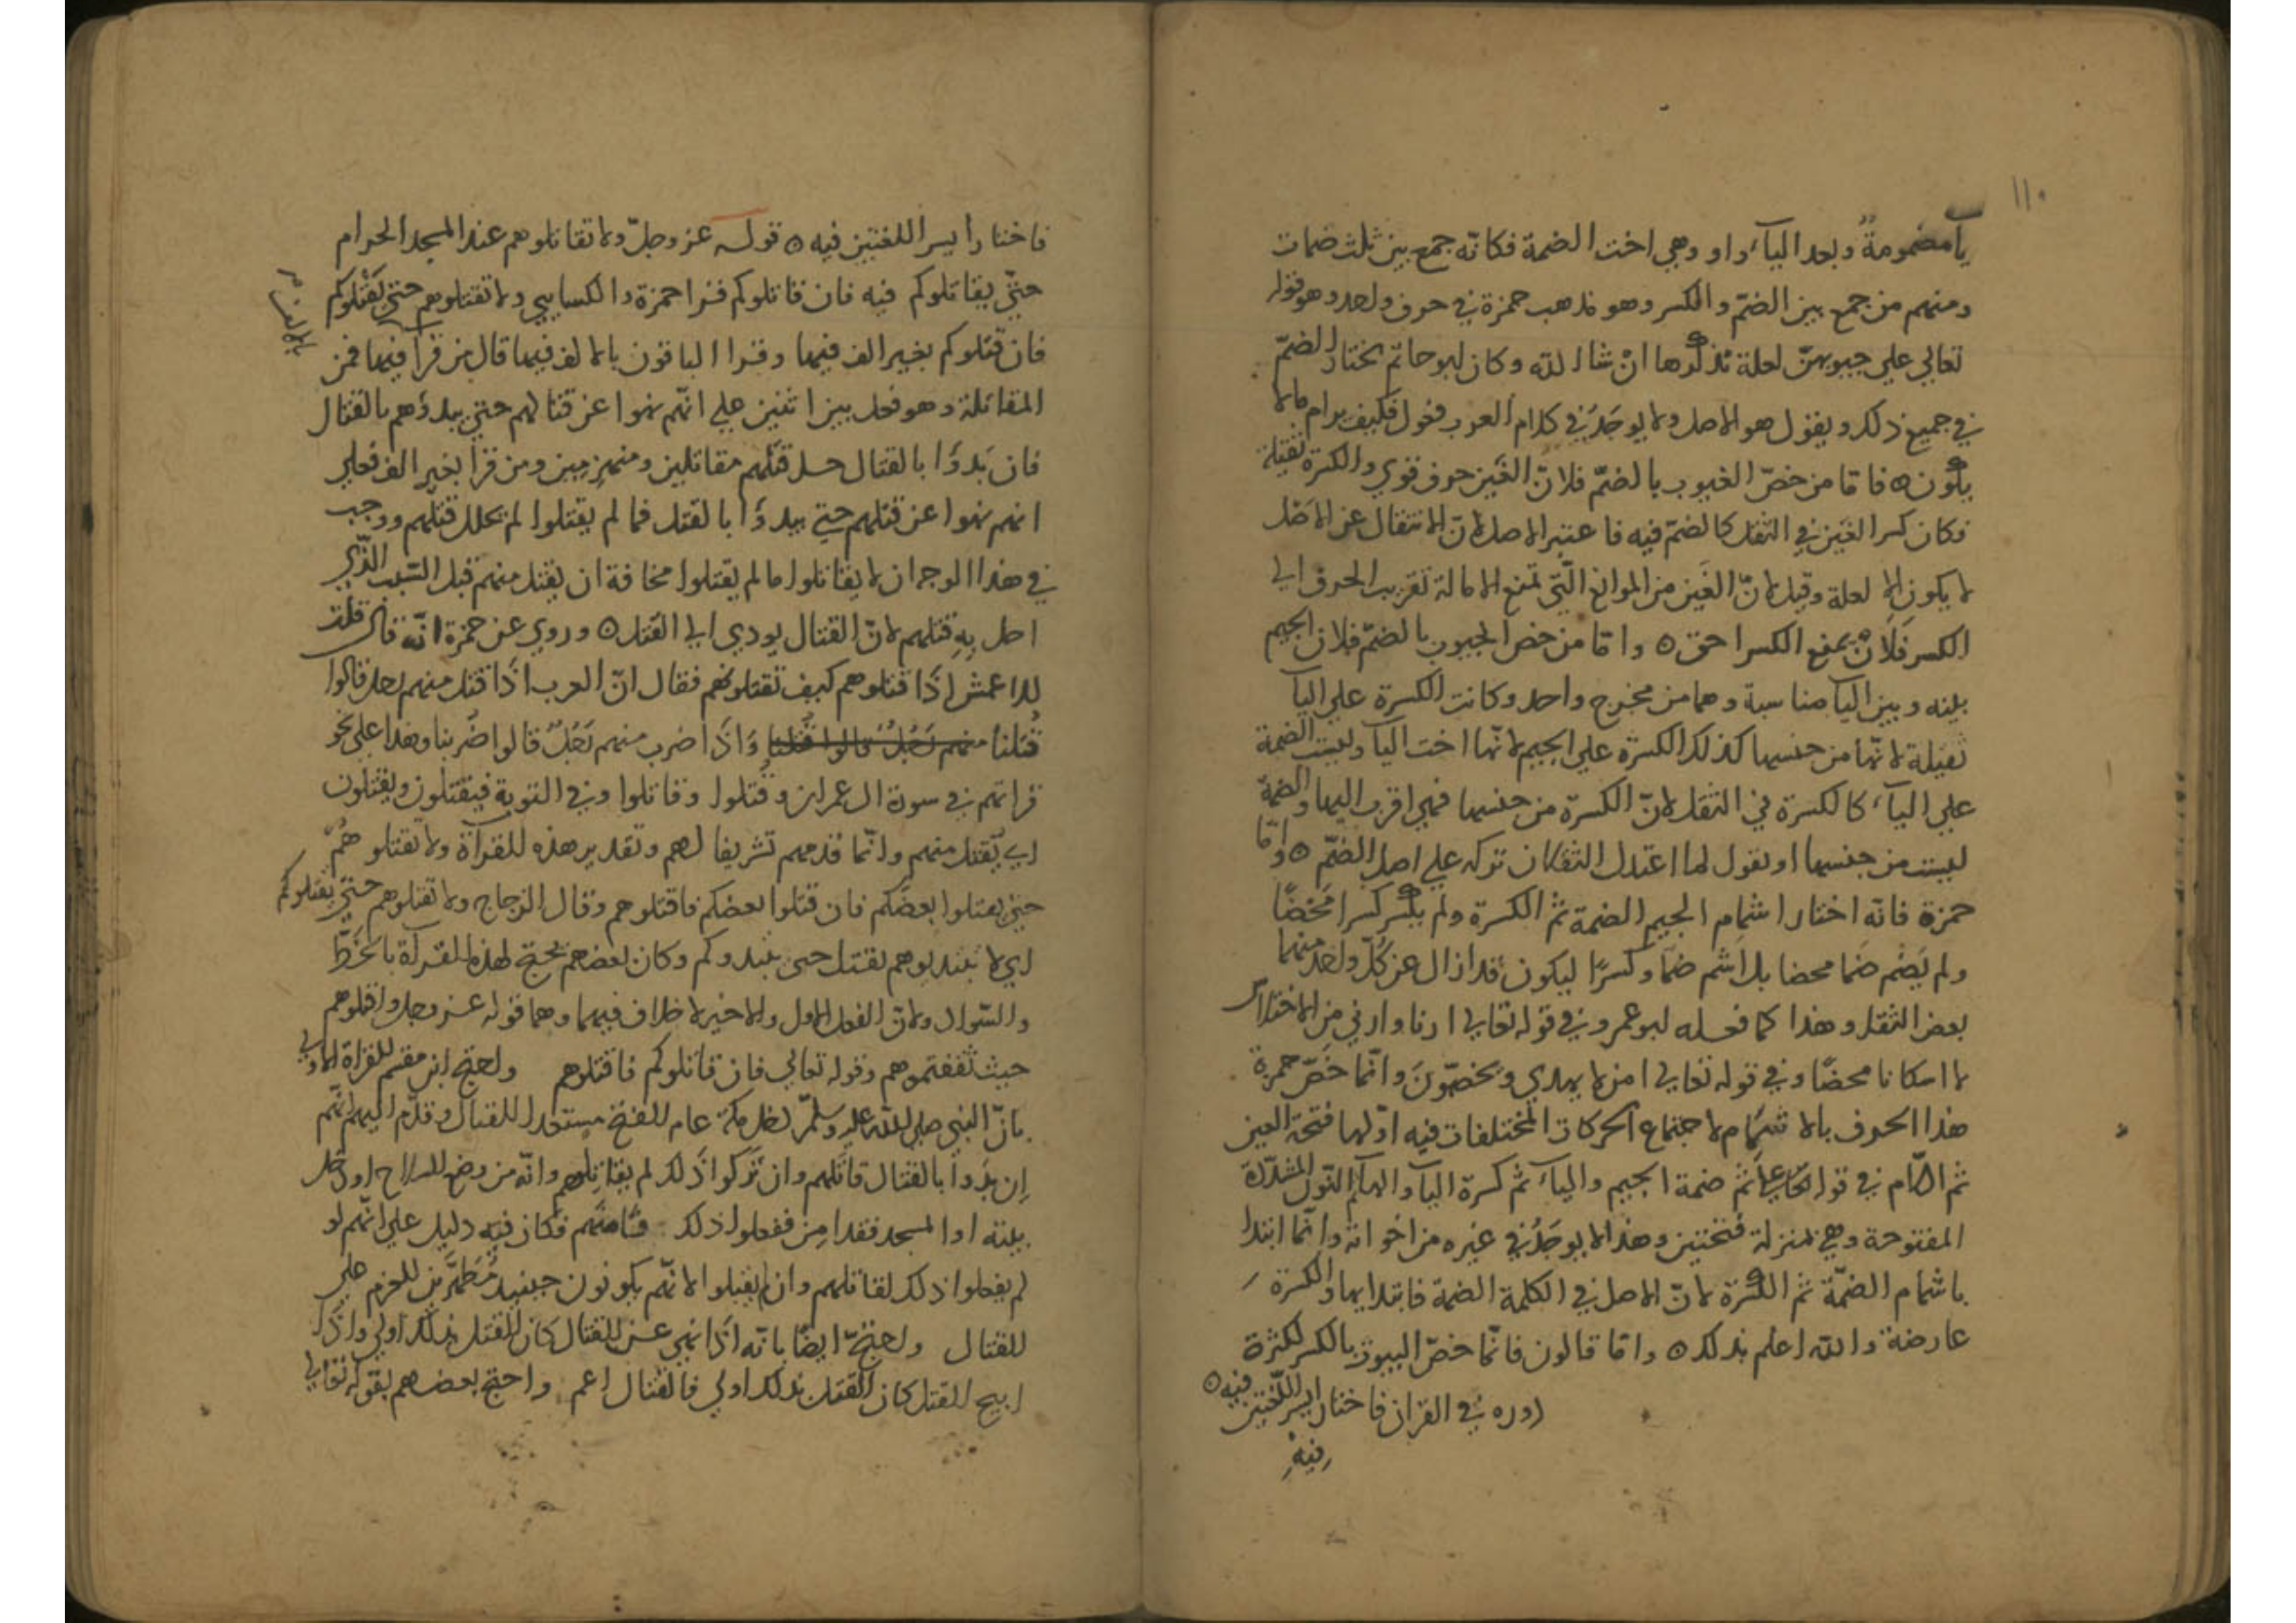 ١١٠
يآ مضمومةٌ وبعد اليآء واو وهي اخت الضمة فكانّه جمع بين ثلث ضمات
ومنهم من جمع بين الضمّ والكسر وهو مذهب حمزة في حرف واحد وهو قوله
تعالي علي جيوبهنّ لعلة نذكرها انْ شا الله وكان ابو حاتم يختار الضمّ
في جميع ذلك ويقول هو الاصل ولا يوجَدُ في كلام العرب فعول فكيف يرام مالا
يكون ٥ فاما من خصّ الغيوب بالضمّ فلانّ الغَين حرف قوي والكسرة ثقيلة
فكان كسر الغَين في الثقل كالضمّ فيه فاعتبر الاصل لانّ الانتقال عن الاصْل
لا يكون الا لعلة وقيل لانّ الغَين من الموانع الّتي تمنع الامالة تقريب الحرف الي
الكسر فَلَانْ يمنع الكسر احق ٥ واما من خصّ الجيوب بالضمّ فلان الجيم
بينه وبين اليآ مناسبة وهما من مخرج واحد وكانت الكسرة علي اليآ
ثقيلة لانّها من جنسها كذلك الكسرة علي الجيم لانّها اخت اليآ وليست الضمة
علي اليآء كالكسرة في الثقل لانّ الكسرة من جنسها فهي اقرب اليها والضمة
ليست من جنسها او نقول لما اعتدل الثقلان تركه علي اصل الضمّ ٥ وامّا
حمزة فانّه اختار اشمام الجيم الضمة ثم الكسرة ولم يكسر كسرا مَحْضًا
ولم يَضُم ضمّا محضا بل اشم ضمّا وكسرًا ليكون قد ازال عن كلّ واحد منهما
بعض الثقل وهذا كما فعله ابو عمرو في قوله تعالي ارنا وارني من الاختلاس
لا اسكانا محضًا وفي قوله تعالي امن لا يهدي ويخصّمونَ وانّما خصّ حمزة
هذا الحرف بالاشمام لاجتماع الحركات المختلفات فيه اوّلها فتحة العين
ثم اللام في قوله تعالي علي ثم ضمة الجيم واليآء ثم كسرة اليآ والهآ ثم النّون المشدّدة
المفتوحة وهي بمنزلة فتحتين وهذا لا يوجَدُ في غيره من اخواته وانّما ابتدا
باشمام الضمّة ثم الكسرة لانّ الاصل في الكلمة الضمة فابتدا بها والكسرة
عارضة والله اعلم بذلك ٥ واما قالون فانّما خصّ البيوت بالكسر لكثرة
دوره في القران فاختار ايسر اللّغتين فيه ٥
فيهِ
فاختار ايسر اللغتين فيه ٥ قوله عز وجلّ ولا تقاتلوهم عند المسجد الحرام
حتّي يقاتلوكم فيه فان قاتلوكم قرا حمزة والكسايي ولا تقتلوهم حتي يَقْتلوكم
فان قتلوكم بغير الف فيها وقرا الباقون بالالف فيها قال من قرآ فيها فمن
المقاتلة وهو فعل بين اثنين علي انّهم نهوا عن قتالهم حتي يبدؤهم بالقتال
فان بَدؤُا بالقتال حل قتلهم مقاتلين ومنهزمين ومن قرا بغير الف فعلي
انهم نهوا عن قتلهم حتي يبدؤُا بالقتل فما لم يقتلوا لم يحلل قتلهم ووجب
في هذا الوجه ان لا يقاتلوا ما لم يقتلوا مخافة ان يقتل منهم قبل السّبب الّذي
احل بِهِ قتلهم لانّ القتال يودي الي القتل ٥ وروي عن حمزة انّه قال قلت
للاعمش اذَا قتلوهم كيف تقتلونهم فقال انّ العرب اذَا قتل منهم رجل قالوا
قُتلنا منهم رَجُلٌ قالوا قتلنا وَاذَا ضرب منهم رَجُلٌ قالوا ضُربنا وهذا علي نحو
قراتهم في سورة ال عمران وقُتلوا وقاتلوا وفي التوبة فيُقتلون ويَقتلون
اي يُقتل منهم وانّما قدمهم تشريفا لهم وتقدير هذه القراة ولا تقتلوهُمْ
حتي يقتلوا بعضَكم فان قتلوا بعضكم فاقتلوهم وقال الزجاج ولا تقتلوهم حتي يقتلوكم
اي لا تبتديوهم بقتل حتي يبتدوكم وكان بعضهم يحتج لهذه القرآة بالخَطّ
والسّوال ولانّ الفعل الاول والاخير لا خلاف فيهما وهما قوله عز وجل واقتلوهم
حيث ثقفتموهم وقوله تعالي فان قاتلوكم فاقتلوهم واحتج ابن مقسم للقراة الاولي
بانّ النبي صلي الله عليه وسلّم دخل مكة عام الفتح مستعدا للقتال وقدّم اليهم انّهم
اِن بدَوا بالقتال قاتلهم وان تركوا ذلك لم يقاتلهم وانّه من وضع السلاح او دخل
بيته او المسجد فقد امِن ففعلوا ذلك فامنهم فكان فيه دليل علي انّهم لو
لم يفعلوا ذلك لقاتلهم وان لم يقتلوا لانّهم يكونون حينيذ مُظهرين للعزم علي
القتال واحتجّ ايضًا بانّه اذَا نهي عن القتال كان القتل بذلك اولي واذَا
ابيح القتل كان القتل بذلك اولي فالقتال اعم واحتج بعضهم بقوله تعالي